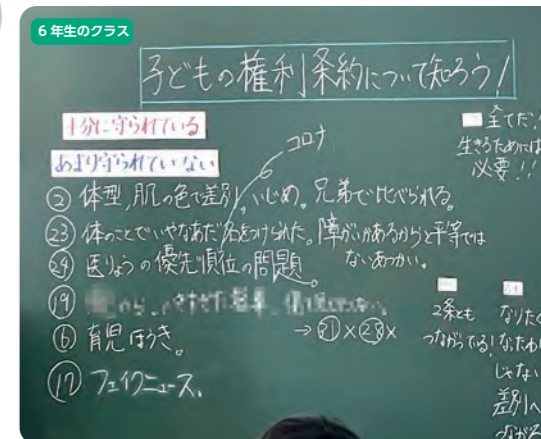 6年生のクラス
子どもの権利条約について知ろう!
十分に守られている
あまり守られていない
コロナ
② 体型、肌の色で差別、いじめ。兄弟で比べられる。
㉓ 体のことでいやなあだ名をつけられた。障がいがあるからと平等では
ないあつかい。
㉔ 医りょうの優先順位の問題。
⑲
⑥ 育児ほうき。
→㉛×㉘×
⑰ フェイクニュース、
全てだ!
生きるためには
必要!!
2条とも
つながってる!
なりたく
なったわ
じゃない
差別へ
つながる